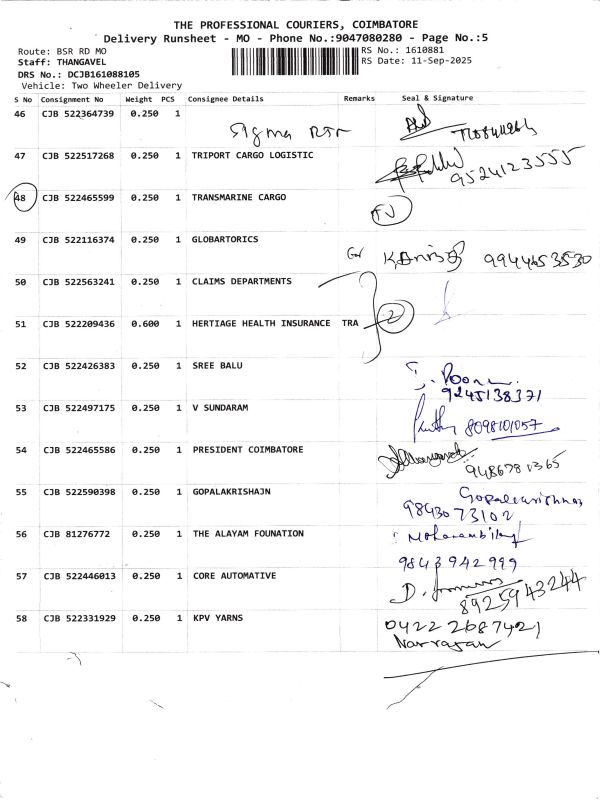 THE PROFESSIONAL COURIERS, COIMBATORE
Delivery Runsheet - MO - Phone No.:9047080280 - Page No.:5
Route: BSR RD MO
RS No.: 1610881
Staff: THANGAVEL
RS Date: 11-Sep-2025
DRS No.: DCJB161088105
Vehicle: Two Wheeler Delivery
S No Consignment No Weight PCS Consignee Details Remarks Seal & Signature
46 CJB 522364739 0.250 1
Sigma
47 CJB 522517268 0.250 1 TRIPORT CARGO LOGISTIC
9524123555
48 CJB 522465599 0.250 1 TRANSMARINE CARGO
TJ
49 CJB 522116374 0.250 1 GLOBARTORICS
9944653530
50 CJB 522563241 0.250 1 CLAIMS DEPARTMENTS
51 CJB 522209436 0.600 1 HERTIAGE HEALTH INSURANCE TRA
2
52 CJB 522426383 0.250 1 SREE BALU
9245138371
53 CJB 522497175 0.250 1 V SUNDARAM
8098101057
54 CJB 522465586 0.250 1 PRESIDENT COIMBATORE
55 CJB 522590398 0.250 1 GOPALAKRISHAJN
Gopalakrishnan
9843073102
56 CJB 81276772 0.250 1 THE ALAYAM FOUNATION
9843942999
57 CJB 522446013 0.250 1 CORE AUTOMATIVE
8925943244
58 CJB 522331929 0.250 1 KPV YARNS
0422 2687421
Narrajan